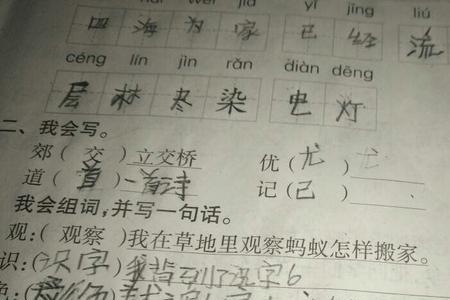 jiā yǐ jīng liú
四 海 为 家 已 经 流
céng lín jìn rǎn diàn dēng
层 林 尽 染 电 灯
二、我会写。
郊( 交 ) 立交桥 优( 尤 )
道( 首 ) 一首诗 记( 己 )
我会组词,并写一句话。
观:( 观察 )我在草地里观察蚂蚁怎样搬家。
识:(识字)